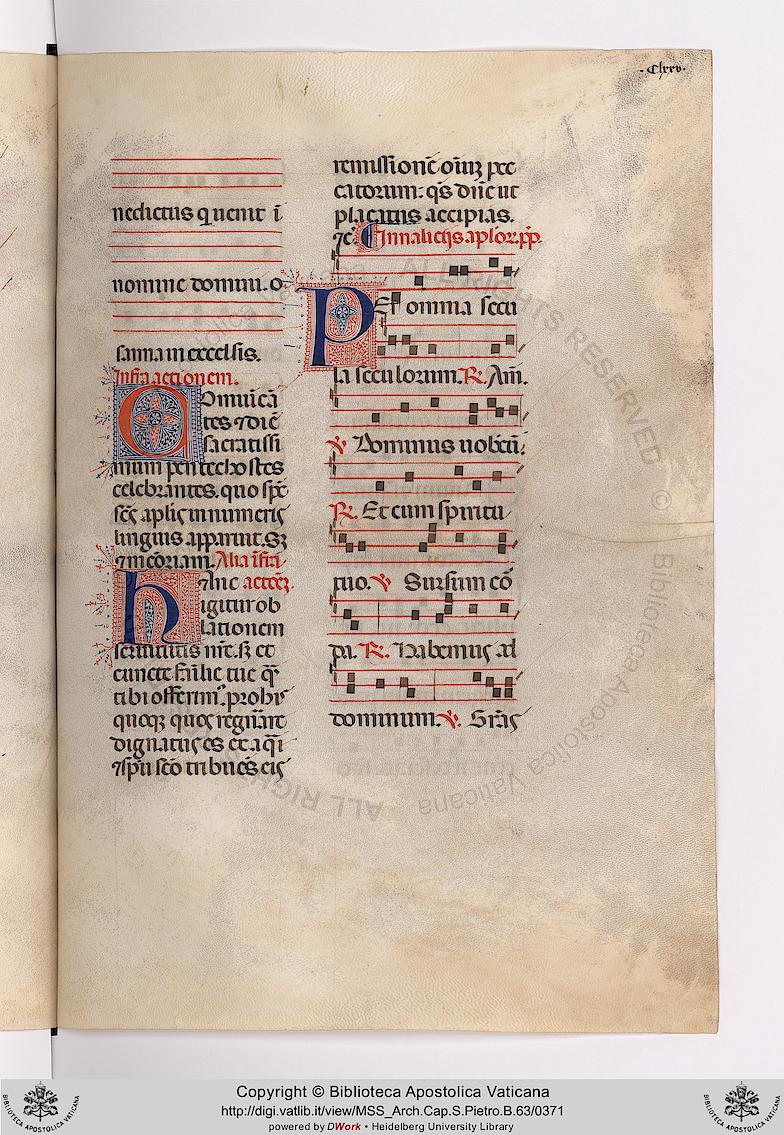 ·Clxxv·
nedictus q̇ uenit ī
nomine domini. o
sanna in excelsis.
Infra actionem.
Comuīcā
tes ⁊ diē
sacratissi
mum pentechostes
celebrantes. quo sp̄c
sc̄s apl̄is in numeris
linguis apparuit. Sꝫ
⁊ mēoriam. Alia ifra
hanc actōꝫ
igitur ob
lationem
seruitutis nr̄e. sꝫ et
cuncte fāilie tue q̄s
tibi offerimꝰ. pro hiꝰ
quoqꝫ quos regn̄are
dignatus es ex aq̄i
⁊ sp̄u sc̄o tribuēs eis
remissionē oīuꝫ pec
catorum: q̄s dn̄e ut
placatus accipias.
⁊c̄. Innaliciis aplor. p̄p.
PEr omnia secu
la seculorum. R. Am̄.
V. Dominus uobcū.
R. Et cum spiritu
tuo. V. Sursum co
da. R. Habemus ad
dominum. V. Grās
ALL RIGHTS RESERVED © Biblioteca Apostolica Vaticana
Copyright © Biblioteca Apostolica Vaticana
http://digi.vatlib.it/view/MSS_Arch.Cap.S.Pietro.B.63/0371
powered by DWork • Heidelberg University Library
BIBLIOTECA APOSTOLICA VATICANA
BIBLIOTECA APOSTOLICA VATICANA